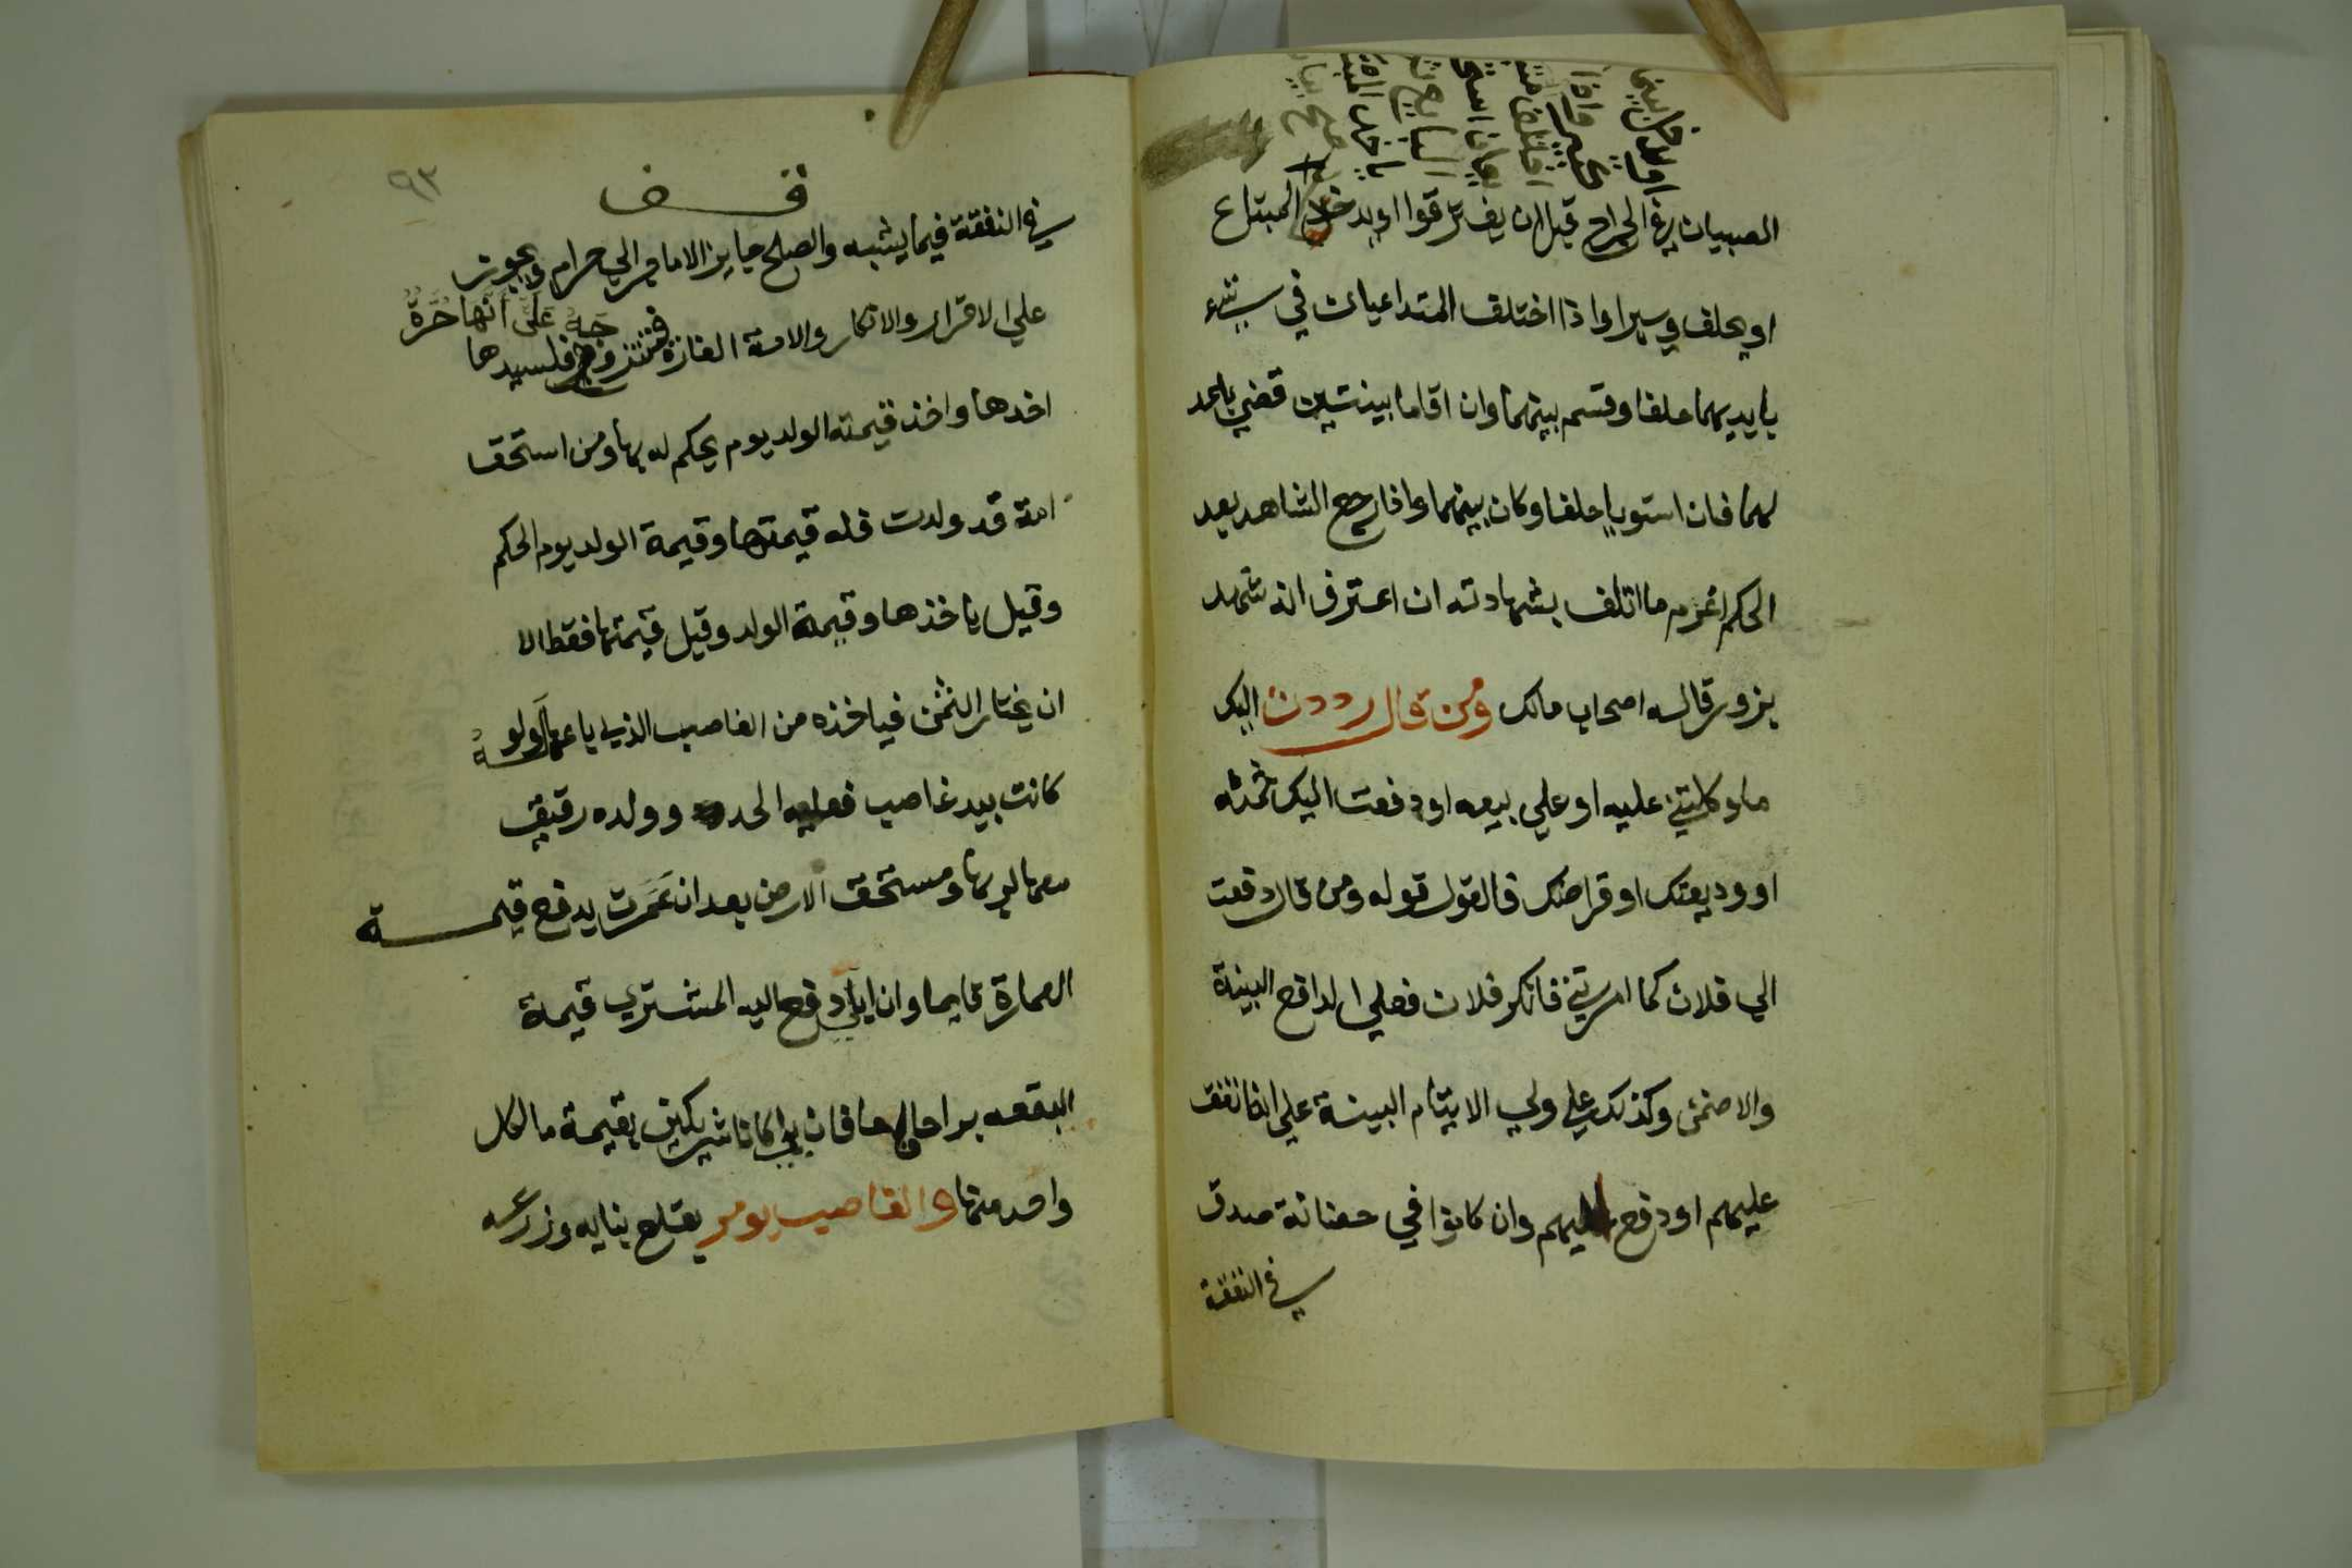 الصبيان في الجراح قبل ان يفترقوا او يدخل
المبتاع
او يحلف ويبرا واذا اختلف المتداعيان في شيء
بايديهما حلفا وقسم بينهما وان اقاما بينتين قضي باعد
لهما فان استويا حلفا وكان بينهما واذا رجع الشاهد بعد
الحكم اغرم ما اتلف بشهادته ان اعترف انه شهد
بزور قاله اصحاب مالك ومن قال رددت اليك
ما وكلتني عليه او علي بيعه او دفعت اليك ثمنه
او وديعتك او قراضك فالقول قوله ومن قال دفعت
الي فلان كما امرتني فانكر فلان فعلي الدافع البينة
والا ضمن وكذلك علي ولي الايتام البينة علي انفانفق
عليهم او دفع اليهم وان كانوا في حضانة صدق
في النفقة
٩٣
قف
في النفقة فيما يشبه والصلح جايز الا ما جر الي حرام ويجوز
علي الاقرار والانكار والامة الغارة فتتزوج فلسيدها
جه على انها حرة
اخدها واخذ قيمة الولد يوم يحكم له بها ومن استحق
امة قد ولدت فله قيمتها وقيمة الولد يوم الحكم
وقيل ياخذها وقيمة الولد وقيل قيمتها فقط الا
ان يختار الثمن فياخذه من الغاصب الذي باعها ولو
كانت بيد غاصب فعليه الحد وولده رقيق
معها لربها ومستحق الارض بعد ان عمرت يدفع قيمة
العمارة قايما وان ابي دفع اليه المشتري قيمة
البقعه براحا فان ابي كانا شريكين بقيمة ما لكل
واحد منهما والغاصب يومر بقلع بنايه وزرعه